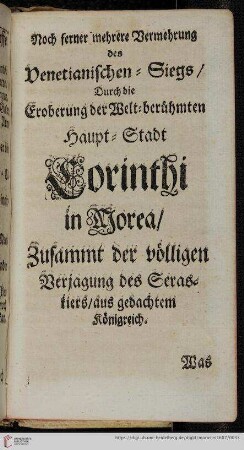 Noch ferner mehrere Vermehrung
des
Venetianischen-Siegs/
Durch die
Eroberung der Welt-berühmten
Haupt-Stadt
Corinthi
in Morea/
Zusammt der völligen
Verjagung des Seras-
kiers/aus gedachtem
Königreich.
Was